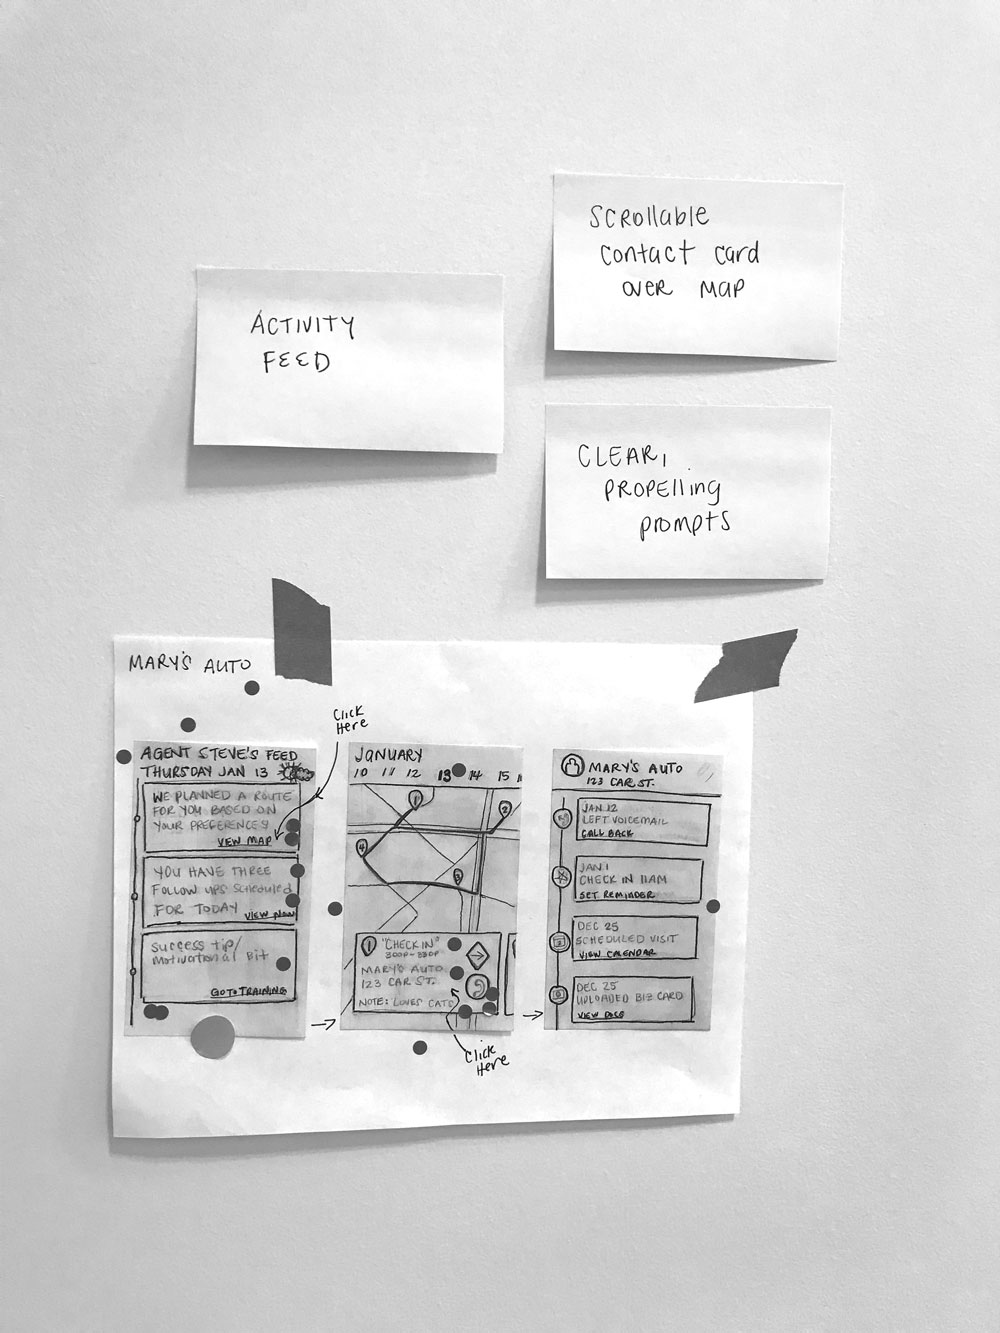 ACTIVITY
FEED
SCROllable
contact card
over map
CLEAR,
PROPElling
prompts
MARY'S AUTO
Click
Here
AGENT STEVE'S FEED
THURSDAY JAN 13
WE PLANNED A ROUTE
FOR YOU BASED ON
YOUR PREFERENCES
VIEW MAP
YOU HAVE THREE
FOLLOW UPS SCHEDULED
FOR TODAY
VIEW NOW
SUCCESS TIP/
MOTIVATIONAL BIT
GO TO TRAINING
JANUARY
10 11 12 13 14 15
1
2
3
4
1 "CHECK IN"
MARY'S AUTO
123 CAR ST.
NOTE: LOVES CATS
Click
Here
MARY'S AUTO
123 CAR ST.
JAN 12
LEFT VOICEMAIL
CALL BACK
JAN 1
CHECK IN 11AM
SET REMINDER
DEC 25
SCHEDULED VISIT
VIEW CALENDAR
DEC 25
UPLOADED BIZ CARD
VIEW